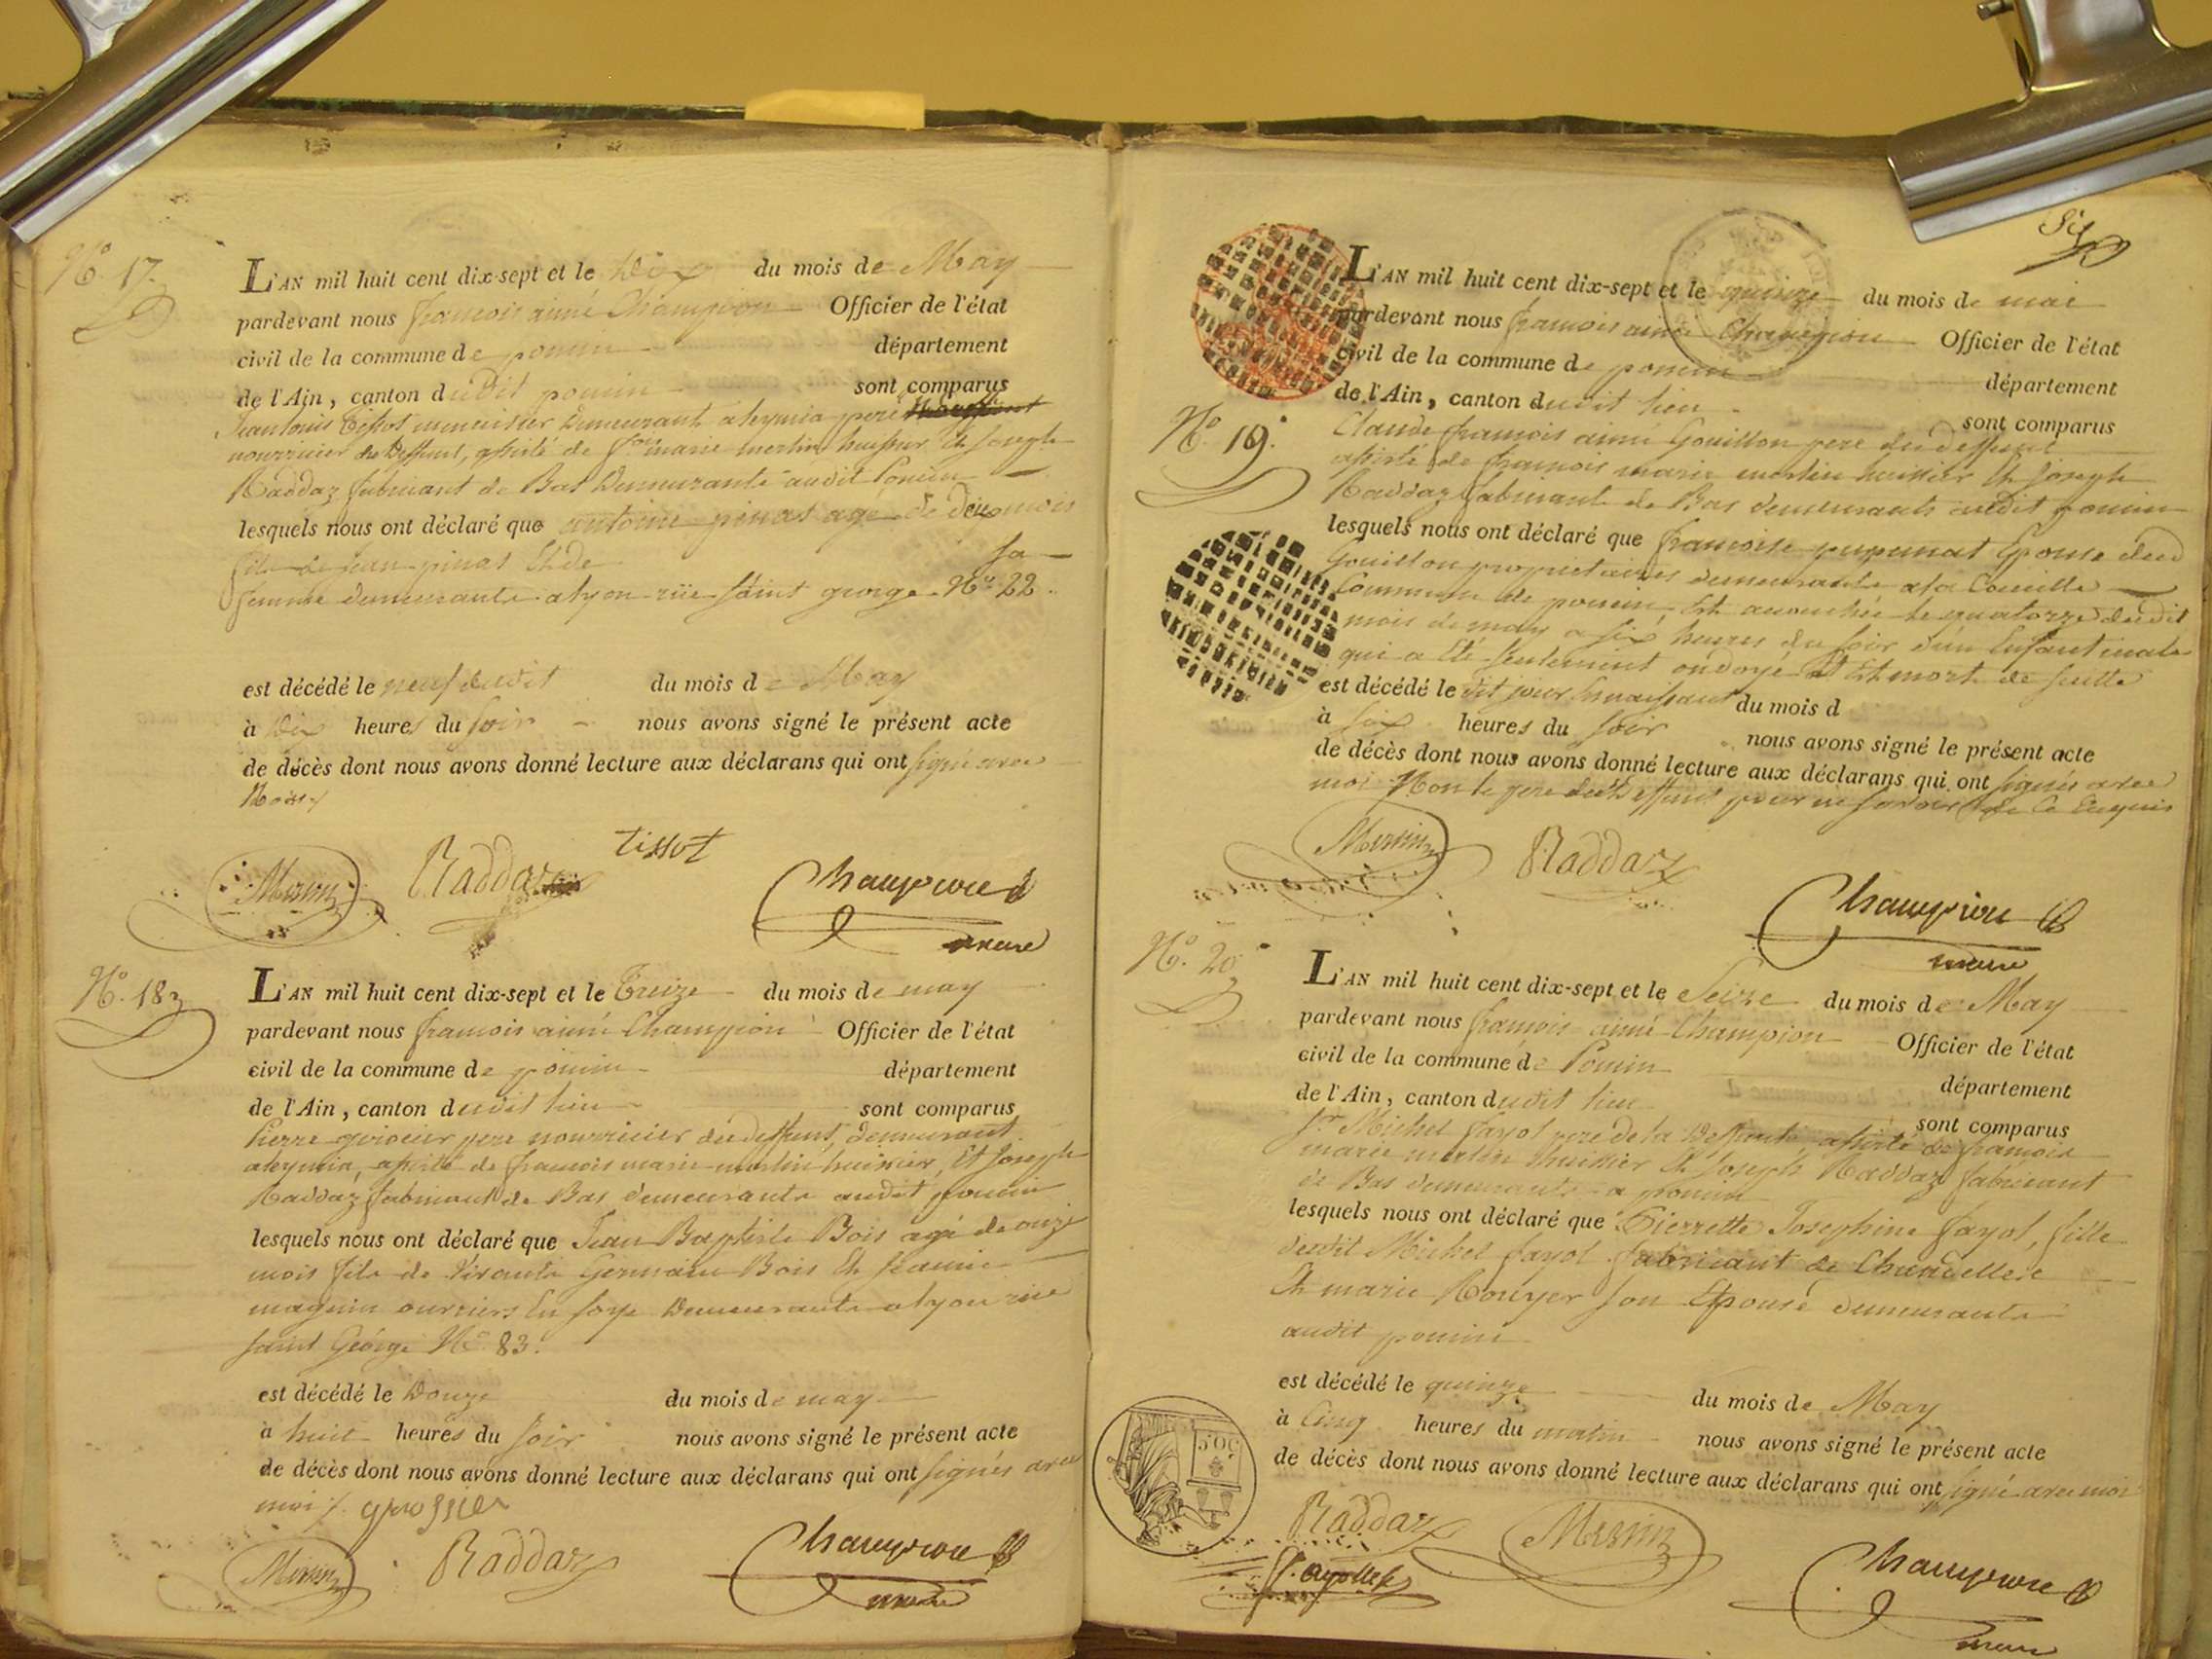 N.° 17.
L'AN mil huit cent dix-sept et le Dix du mois de May
pardevant nous françois aimé Champion Officier de l'état
civil de la commune de poncin département
de l'Ain, canton dudit poncin sont comparus
Jean louis Tissot menuisier demeurant a leymia pere
nourricier du deffunt, assisté de f.ois marie merlin huissier Et Joseph
Raddaz fabricant de Bas Demeurants audit Poncin
lesquels nous ont déclaré que antoine pinat agé de deux mois
fils de Jean pinat Et de sa
femme demeurants a lyon rüe saint george N.° 22.
est décédé le neuf dudit du mois de May
à Dix heures du soir nous avons signé le présent acte
de décès dont nous avons donné lecture aux déclarans qui ont signé avec
Nous
Merlin Raddaz tissot Champion
maire
N.° 18
L'AN mil huit cent dix-sept et le Treize du mois de may
pardevant nous françois aimé Champion Officier de l'état
civil de la commune de poncin département
de l'Ain, canton dudit lieu sont comparus
Pierre pere nourricier du deffunt, demeurant
a leymia, assisté de françois marie merlin huissier, Et Joseph
Raddaz fabricant de Bas demeurants audit poncin
lesquels nous ont déclaré que Jean Baptiste Bois agé de onze
mois fils de Germain Bois Et
magnin ouvriers En soye Demeurants a lyon rüe
saint George N.° 83.
est décédé le Douze du mois de may
à huit heures du soir nous avons signé le présent acte
de décès dont nous avons donné lecture aux déclarans qui ont signés avec
moi
Merlin Raddaz Champion
maire
L'AN mil huit cent dix-sept et le quinze du mois de mai
pardevant nous françois aimé Champion Officier de l'état
civil de la commune de poncin département
de l'Ain, canton dudit lieu sont comparus
N.° 19.
Claude françois aimé Gouillon pere du deffunt
assisté de françois marie merlin huissier Et Joseph
Raddaz fabricant de Bas demeurants audit poncin
lesquels nous ont déclaré que françoise pupunat Epouse dud
Gouillon propriétaires demeurants a la
Commune de poncin Est accouchée le quatorze dudit
mois de may a six heures du soir d'un Enfant male
qui a Eté seulement ondoyé Et Est mort de suitte
est décédé le dit jour du mois d
à six heures du soir nous avons signé le présent acte
de décès dont nous avons donné lecture aux déclarans qui ont signés avec
moi Non le pere du deffunt pour ne savoir de ce Enquis
Merlin Raddaz Champion
maire
N.° 20
L'AN mil huit cent dix-sept et le Seize du mois de May
pardevant nous françois aimé Champion Officier de l'état
civil de la commune de Poncin département
de l'Ain, canton dudit lieu sont comparus
s.r Michel fayol pere de la Deffunte assisté de françois
marie merlin huissier Et Joseph Raddaz fabricant
de Bas demeurants a poncin
lesquels nous ont déclaré que Pierrette Josephine fayol, fille
dudit Michel fayol fabricant de Chandelles
Et marie Rouyer son Epouse demeurants
audit poncin
est décédé le quinze du mois de May
à Cinq heures du matin nous avons signé le présent acte
de décès dont nous avons donné lecture aux déclarans qui ont signé avec moi
Raddaz Merlin
Champion
maire
50.C